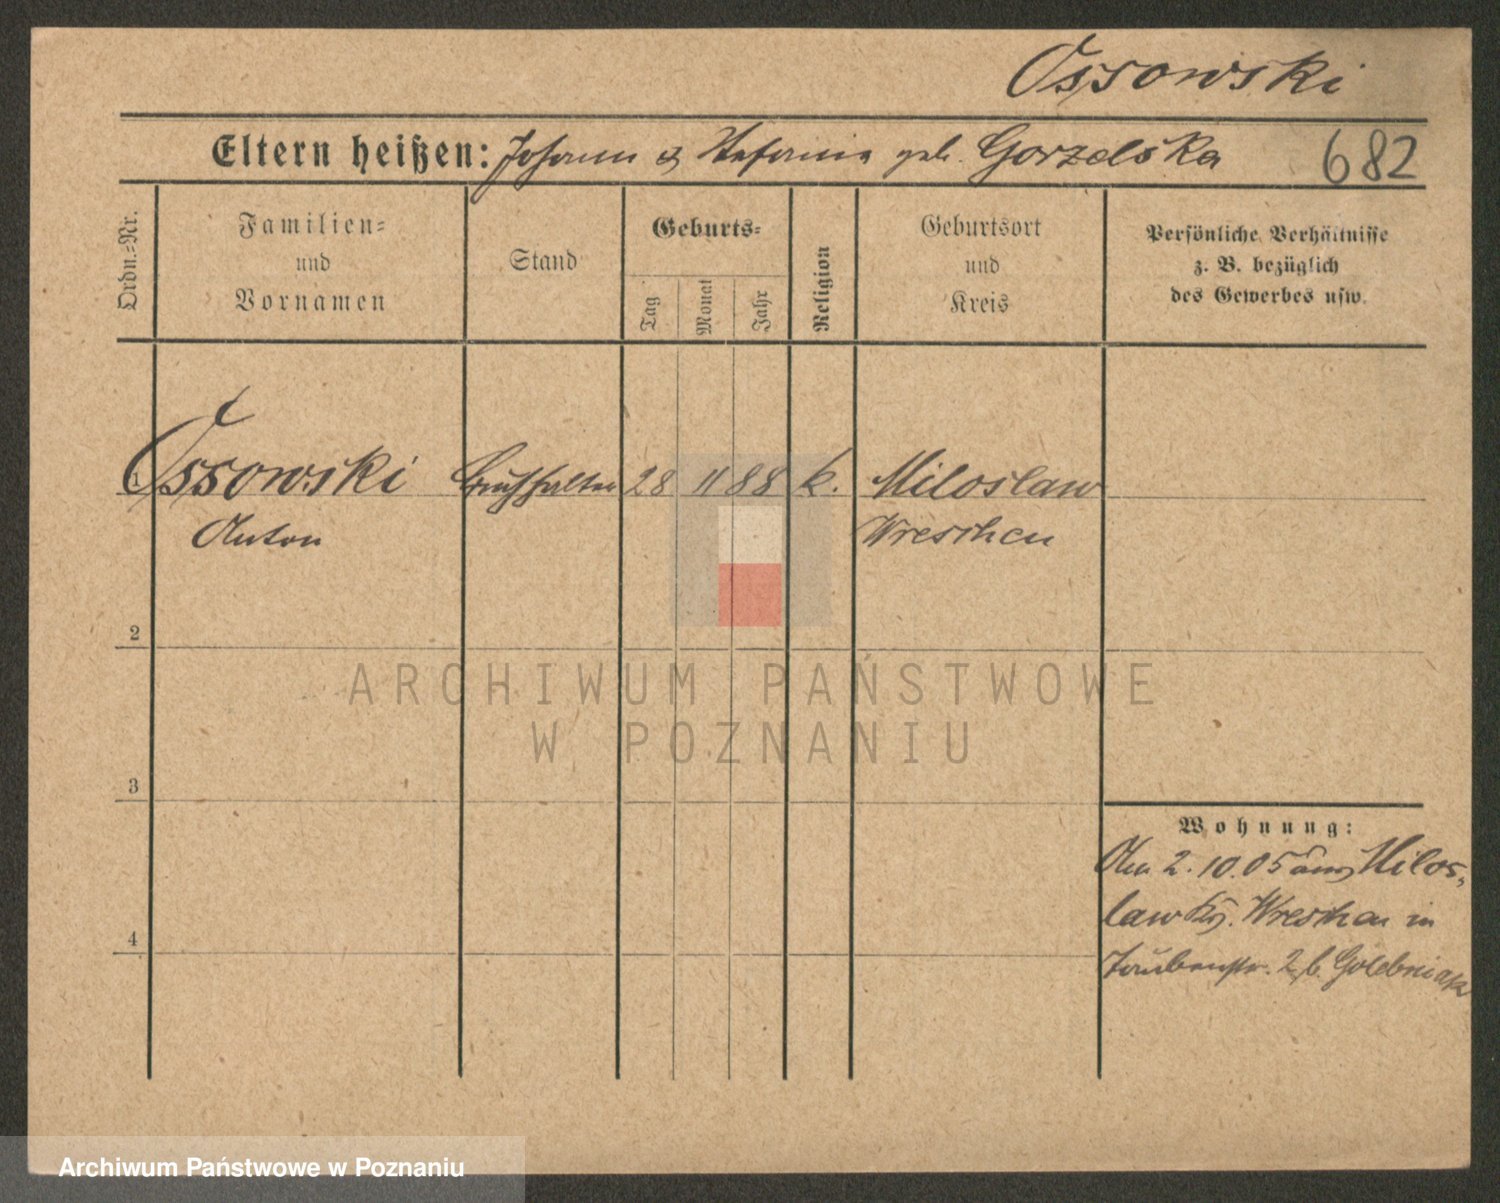 Ossowski
Eltern heißen: Johann & Stefania geb. Gorzelska 682
Ordn.-Nr.
Familien=
und
Vornamen
Stand
Geburts=
Tag
Monat
Jahr
Religion
Geburtsort
und
Kreis
Persönliche Verhältnisse
z. B. bezüglich
des Gewerbes usw.
1 Ossowski Buchhalter 28 11 88 k. Miloslaw
Anton Wreschen
2
3
4
ARCHIWUM PAŃSTWOWE
W POZNANIU
Wohnung:
Am 2.10.05 aus Milos-
law Kr. Wreschen in
Taubenstr. 2 b. Golebniak
Archiwum Państwowe w Poznaniu